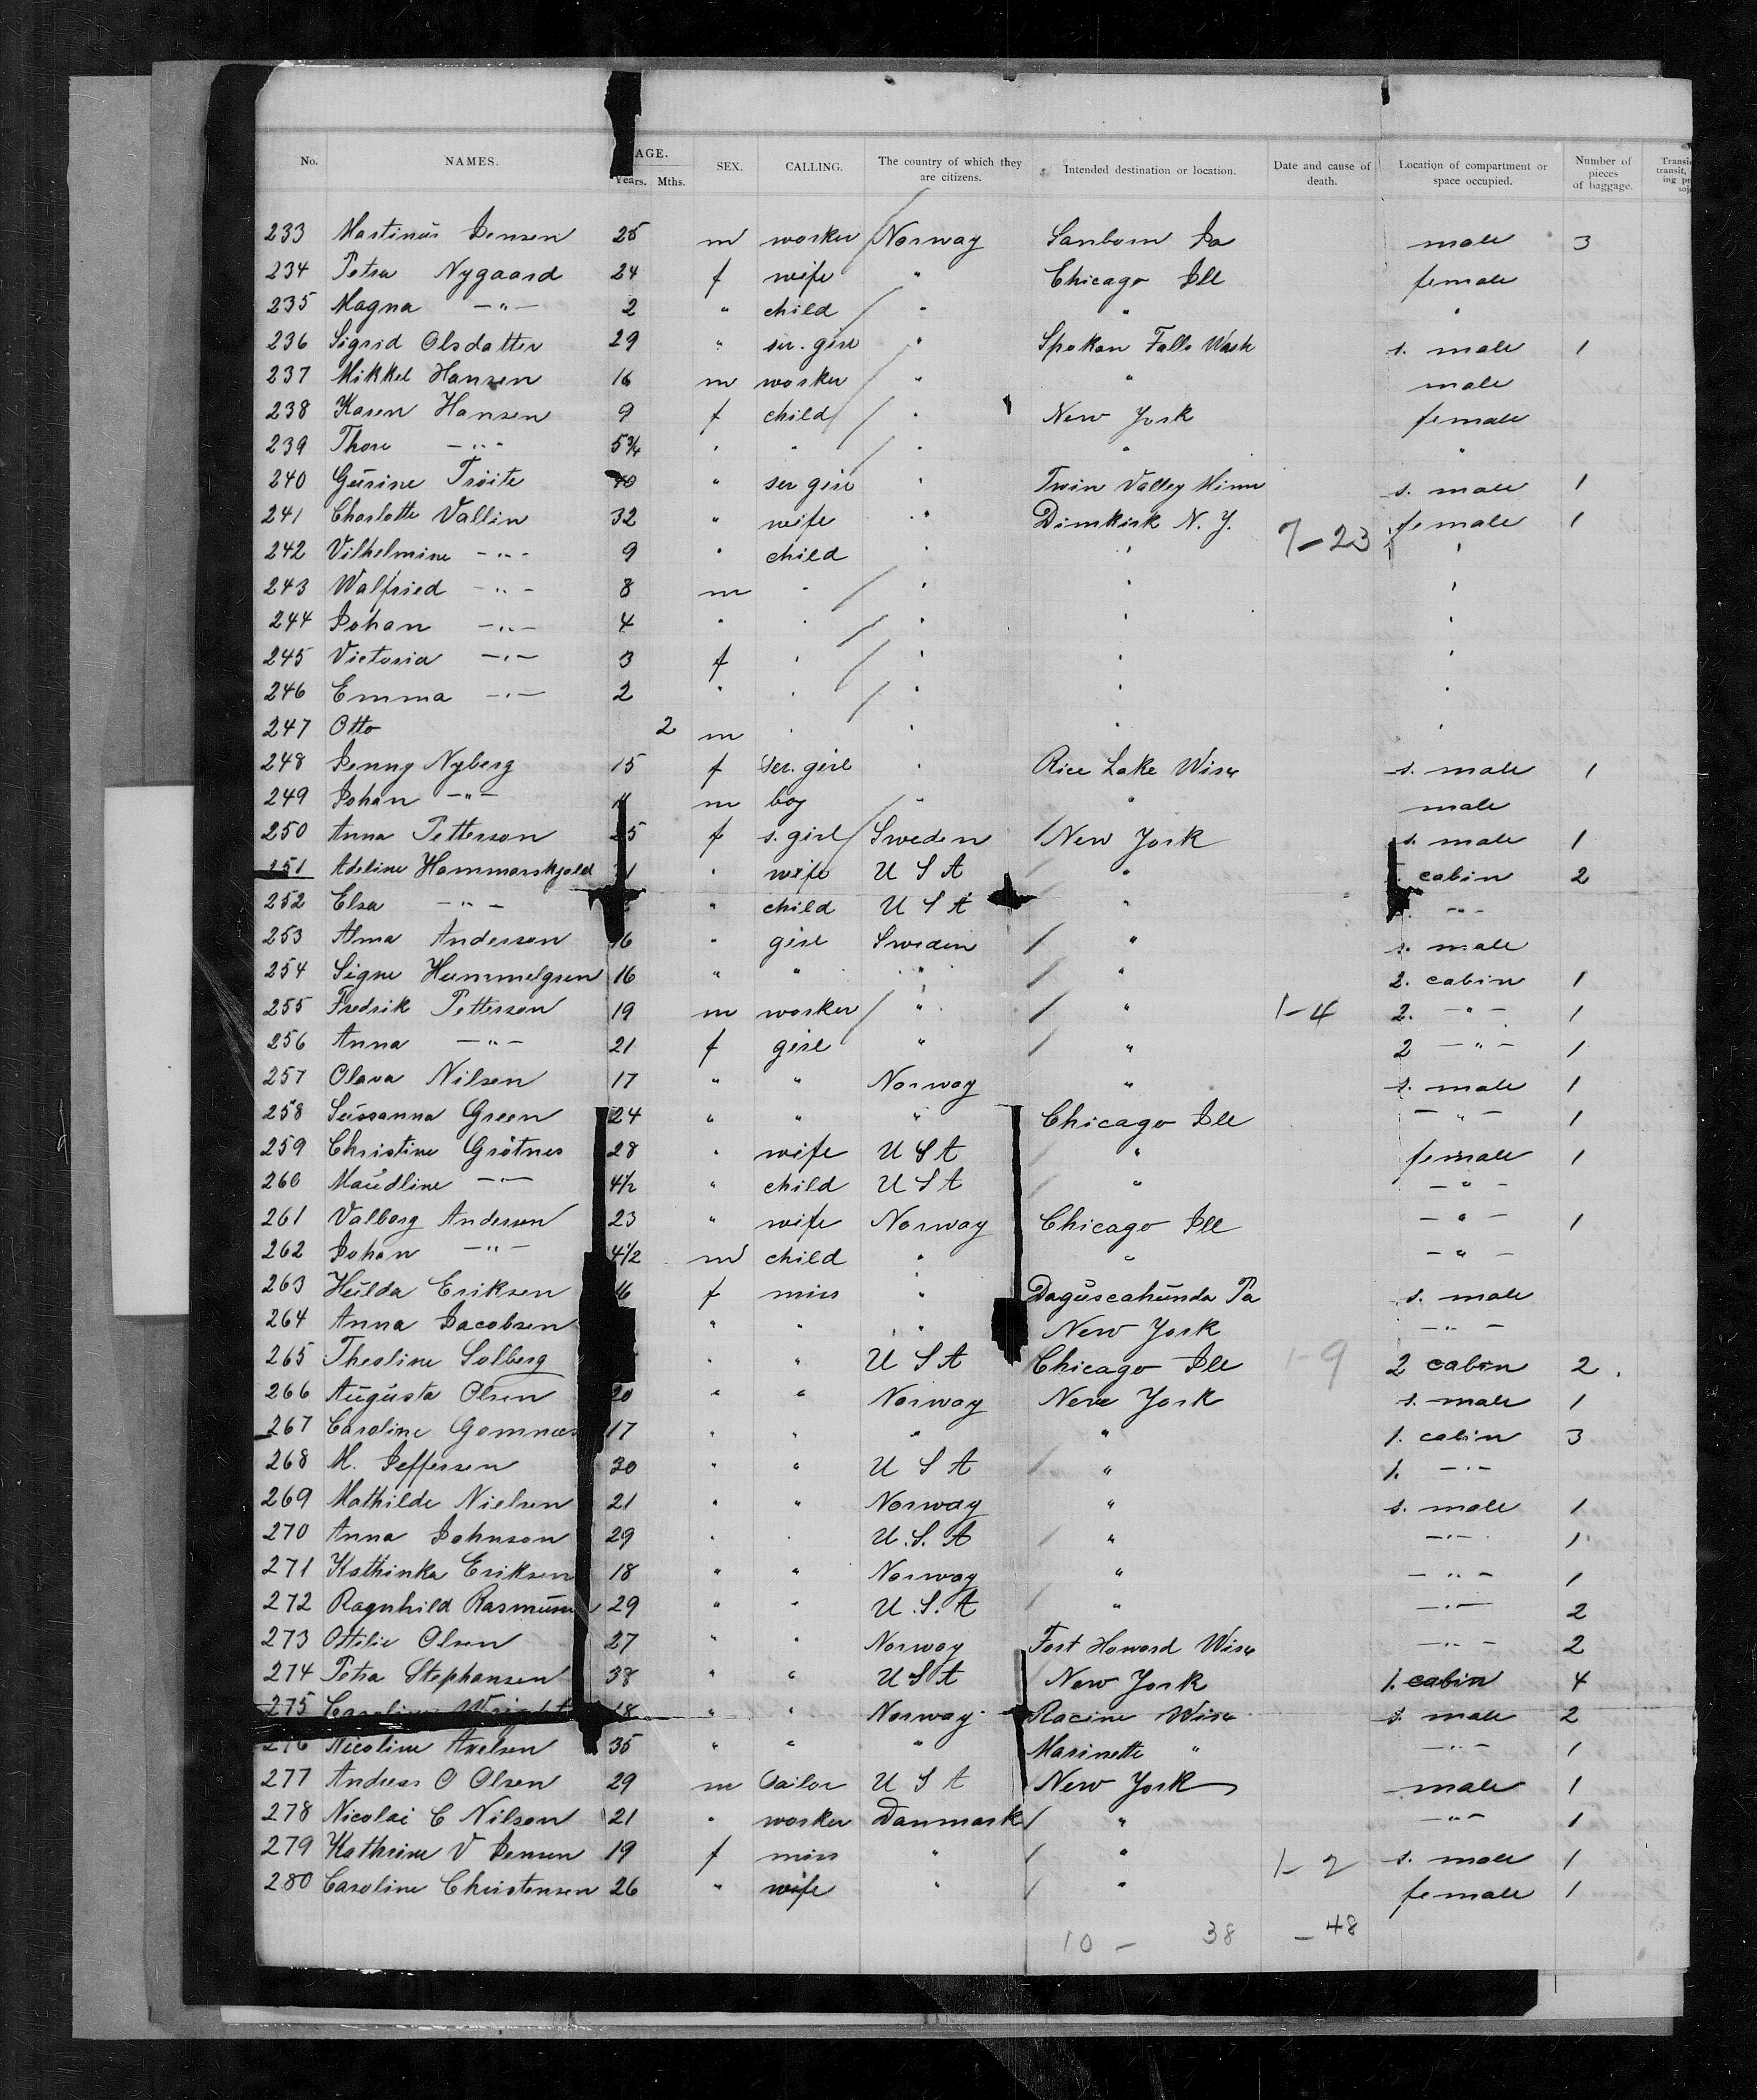 No. NAMES. AGE. Years. Mths. SEX. CALLING. The country of which they are citizens. Intended destination or location. Date and cause of death. Location of compartment or space occupied. Number of pieces of baggage.
233 Martinus Jensen 25 m worker Norway Sanborn Ja male 3
234 Petra Nygaard 24 f wife " Chicago Ill female
235 Magna —"— 2 " child " " "
236 Sigrid Olsdatter 29 " ser. girl " Spokan Falls Wash s. male 1
237 Mikkel Hansen 16 m worker " " male
238 Karen Hansen 9 f child " New York female
239 Thore —"— 5¾ " " " " "
240 Gurine Tröite " ser girl " Twin Valley Minn s. male 1
241 Charlotte Vallin 32 " wife " Dimkirk N. Y. 7-23 female 1
242 Vilhelmine —"— 9 " child " " "
243 Walfried —"— 8 m " " " "
244 Johan —"— 4 " " " " "
245 Victoria —"— 3 f " " " "
246 Emma —"— 2 " " " " "
247 Otto 2 m " " " "
248 Jenny Nyberg 15 f ser. girl " Rice Lake Wisc s. male 1
249 Johan —"— 11 m boy " " male
250 Anna Petterson 25 f s. girl Sweden New York s. male 1
251 Adeline Hammarskjold " wife U S A " cabin 2
252 Elsa —"— " child U S A " —"—
253 Alma Anderson 16 " girl Sweden " s. male
254 Signe Hummelgren 16 " " " " 2. cabin 1
255 Fredrik Petterson 19 m worker " " 1-4 2. —"— 1
256 Anna —"— 21 f girl " " 2 —"— 1
257 Olava Nilsen 17 " " Norway " s. male 1
258 Sussanna Green 24 " " " Chicago Ill —"— 1
259 Christine Grötnes 28 " wife U S A " female 1
260 Maudline —"— 4½ " child U S A " —"—
261 Valborg Anderson 23 " wife Norway Chicago Ill —"— 1
262 Johan —"— 4½ m child " " —"—
263 Hulda Eriksen 16 f miss " Daguscahunda Pa s. male
264 Anna Jacobsen " " " New York —"—
265 Theoline Solberg " " U S A Chicago Ill 1-9 2 cabin 2.
266 Augusta Olsen 20 " " Norway New York s. male 1
267 Caroline Gomnæs 17 " " " " 1. cabin 3
268 M. Jeffersen 30 " " U S A " 1. —"—
269 Mathilde Nielsen 21 " " Norway " s. male 1
270 Anna Johnson 29 " " U. S. A " —"— 1
271 Kathinka Eriksen 18 " " Norway " —"— 1
272 Ragnhild 29 " " U. S. A " —"— 2
273 Ottilie Olsen 27 " " Norway Fort Howard Wisc —"— 2
274 Petra Stephansen 38 " " U S A New York 1. cabin 4
275 Caroline Wright 18 " " Norway Racine Wisc s. male 2
276 Nicoline Axelsen 35 " " " Marinette " —"— 1
277 Andreas O Olsen 29 m Sailor U S A New York male 1
278 Nicolai C Nilson 21 " worker Danmark " —"— 1
279 Kathrine V Jensen 19 f miss " " 1-2 s. male 1
280 Caroline Christensen 26 " wife " " female 1
10 - 38 - 48